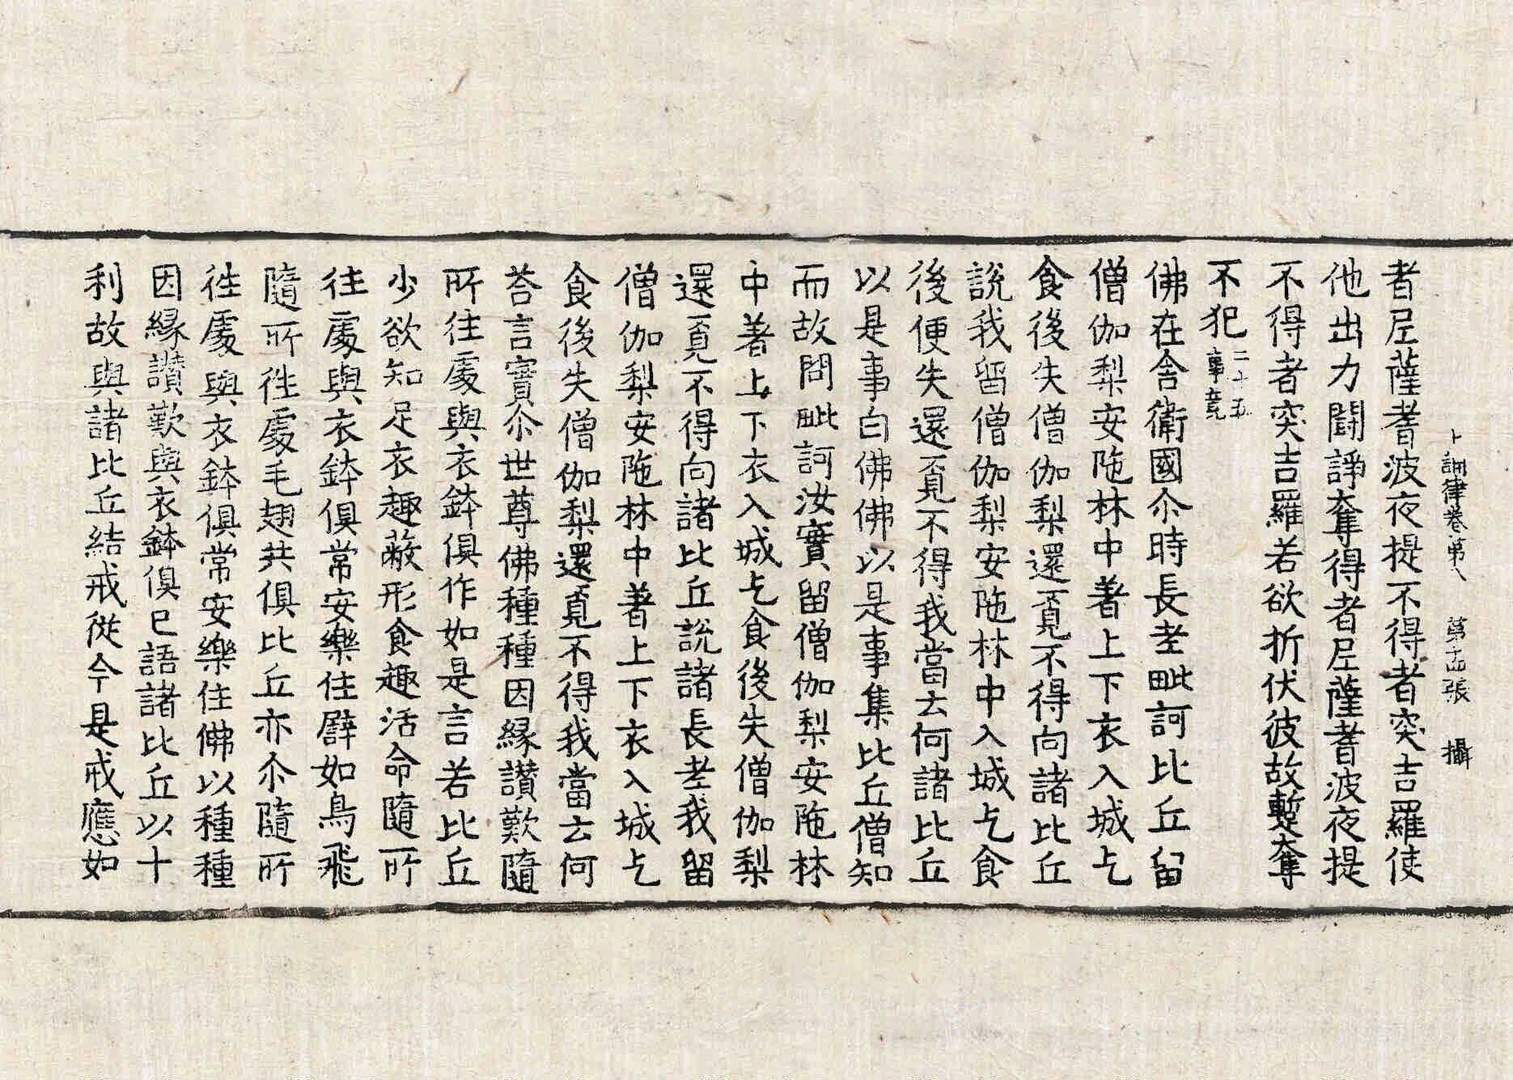 十誦律卷第八　第十五張　攝
者尼薩耆波夜提不得者突吉羅使
他出力鬪諍奪得者尼薩耆波夜提
不得者突吉羅若欲折伏彼故暫奪
不犯二十五事竟
佛在舍衛國尒時長老毗訶比丘留
僧伽梨安陁林中著上下衣入城乞
食後失僧伽梨還覔不得向諸比丘
說我留僧伽梨安陁林中入城乞食
後便失還覔不得我當云何諸比丘
以是事白佛佛以是事集比丘僧知
而故問毗訶汝實留僧伽梨安陁林
中著上下衣入城乞食後失僧伽梨
還覔不得向諸比丘說諸長老我留
僧伽梨安陁林中著上下衣入城乞
食後失僧伽梨還覔不得我當云何
荅言實尒世尊佛種種因緣讃歎隨
所往處與衣鉢俱作如是言若比丘
少欲知足衣趣蔽形食趣活命隨所
往處與衣鉢俱常安樂住譬如鳥飛
隨所徃處毛翅共俱比丘亦尒隨所
徃處與衣鉢俱常安樂住佛以種種
因緣讃歎與衣鉢俱已語諸比丘以十
利故與諸比丘結戒從今是戒應如